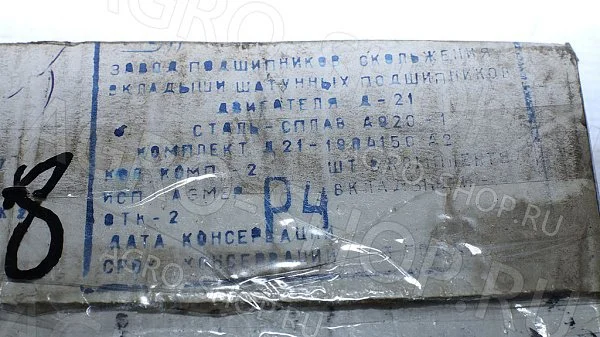 ЗАВОД ПОДШИПНИКОВ СКОЛЬЖЕНИЯ
ВКЛАДЫШИ ШАТУННЫХ ПОДШИПНИКОВ
ДВИГАТЕЛЯ Д-21
СТАЛЬ-СПЛАВ А020-1
КОМПЛЕКТ Д21-1004150 Р2
КОД КОМП 2 ШТ
ИСП
ВКЛАДЫШЕЙ
Р4
ОТК-2
ДАТА КОНСЕРВАЦИ
КОНСЕРВАЦИИ
8
AGRO-SHOP.RU